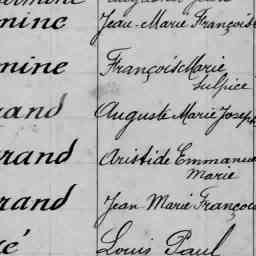 minc Jean-Marie François
mine François Marie
Sulpice
rand Auguste Marie Joseph
rand Aristide Emmanuel
Marie
rand Jean Marie François
é Louis Paul